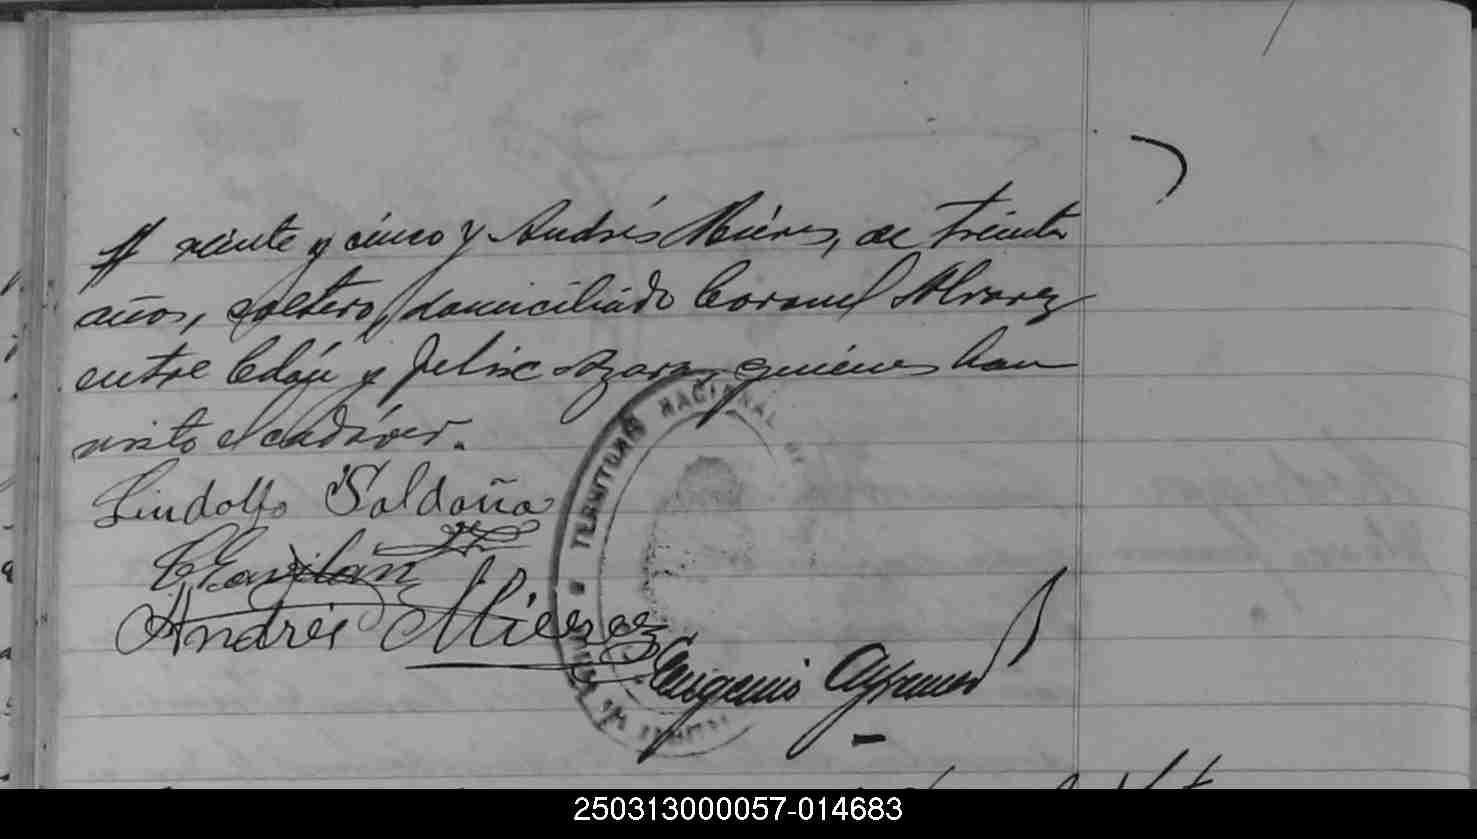 veinte y cinco y Andrés Mieres, de treinta
años, soltero, domiciliado Coronel Alvarez
entre Edén y Felix Azara, quiénes han
visto el cadáver.
Lindolfo Saldaña
Gavilan
Andrés Mieres
TERRITORIO NACIONAL
Eugenio
250313000057-014683